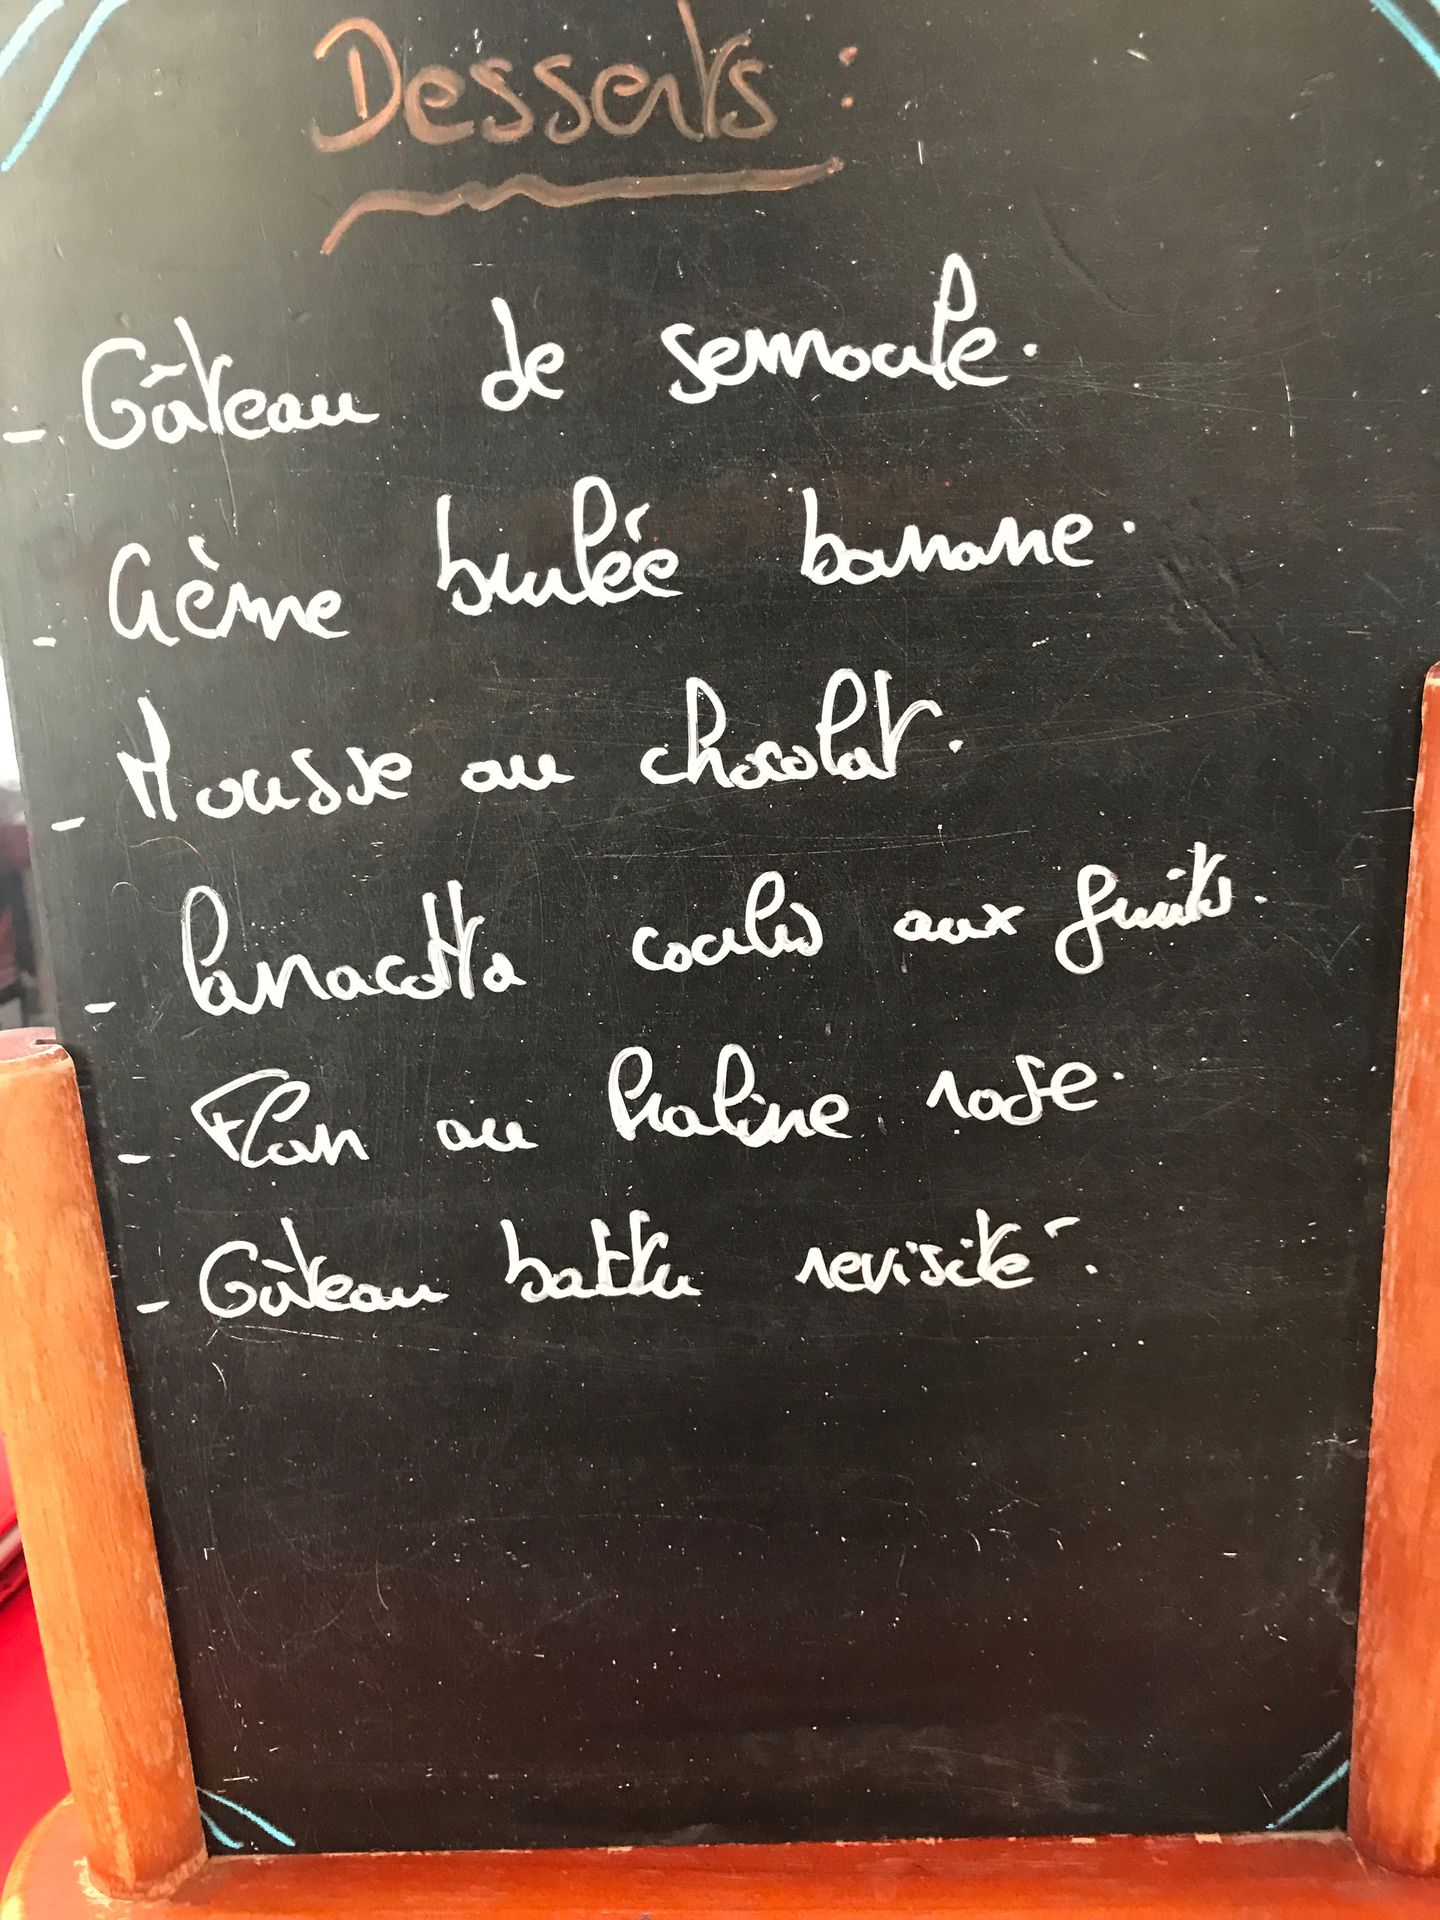 Desserts :
- Gâteau de semoule.
- Crème brulée banane.
- Mousse au chocolat.
- Panacotta coulis aux fruits.
- Flan au Praline rose.
- Gâteau battu revisité.